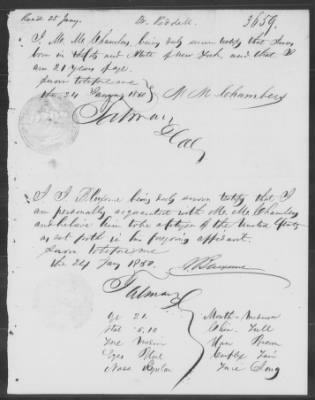 Recd 25 Jany. W. Riddell. 3659.
I M. M. Chambers, being duly sworn testify that I was
born in City and State of New York, and that I
am 21 years of age.
Sworn to before me
the 24 January 1850 M. M. Chambers
I, J. being duly sworn testify that I
am personally acquainted with M. M. Chambers
and believe him to be a citizen of the United States
as set forth in the foregoing affidavit.
Sworn to before me
the 24 Jany 1850.
Age 21. Mouth - Medium
Stat 5.10 Chin Full
Fore Medium Hair Brown
Eyes Blue Complex Fair
Nose Face Long